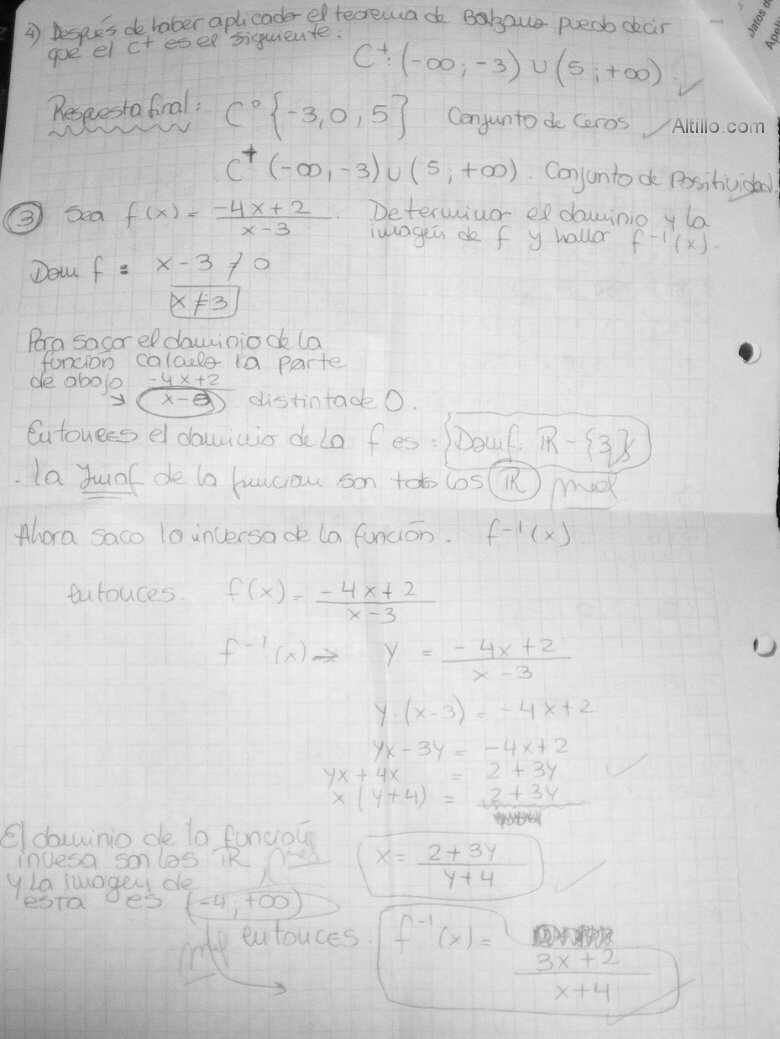 4) Después de haber aplicado el teorema de Bolzano puedo decir
que el C+ es el siguiente.
C+: (-∞; -3) ∪ (5; +∞)
Respuesta final: C° {-3, 0, 5} Conjunto de Ceros
Altillo.com
C+ (-∞, -3) ∪ (5; +∞). Conjunto de Positividad
3 Sea f(x) = (-4x+2)/(x-3). Determinar el dominio y la
imagen de f y hallar f⁻¹(x).
Dom f = x-3 ≠ 0
x ≠ 3
Para sacar el dominio de la
función calculo la parte
de abajo (-4x+2)/(x-3) distinta de 0.
Entonces el dominio de la f es: {Dom f: ℝ - {3}}
. la Imaf de la funcion son todos los ℝ mal
Ahora saco la inversa de la función. f⁻¹(x)
entonces. f(x) = (-4x+2)/(x-3)
f⁻¹(x) → y = (-4x+2)/(x-3)
y·(x-3) = -4x+2
yx-3y = -4x+2
yx+4x = 2+3y
x(y+4) = 2+3y
El dominio de la función
invesa son los ℝ
x = (2+3y)/(y+4)
y la imagen de
esta es (-4, +∞)
entonces. f⁻¹(x) = (3x+2)/(x+4)